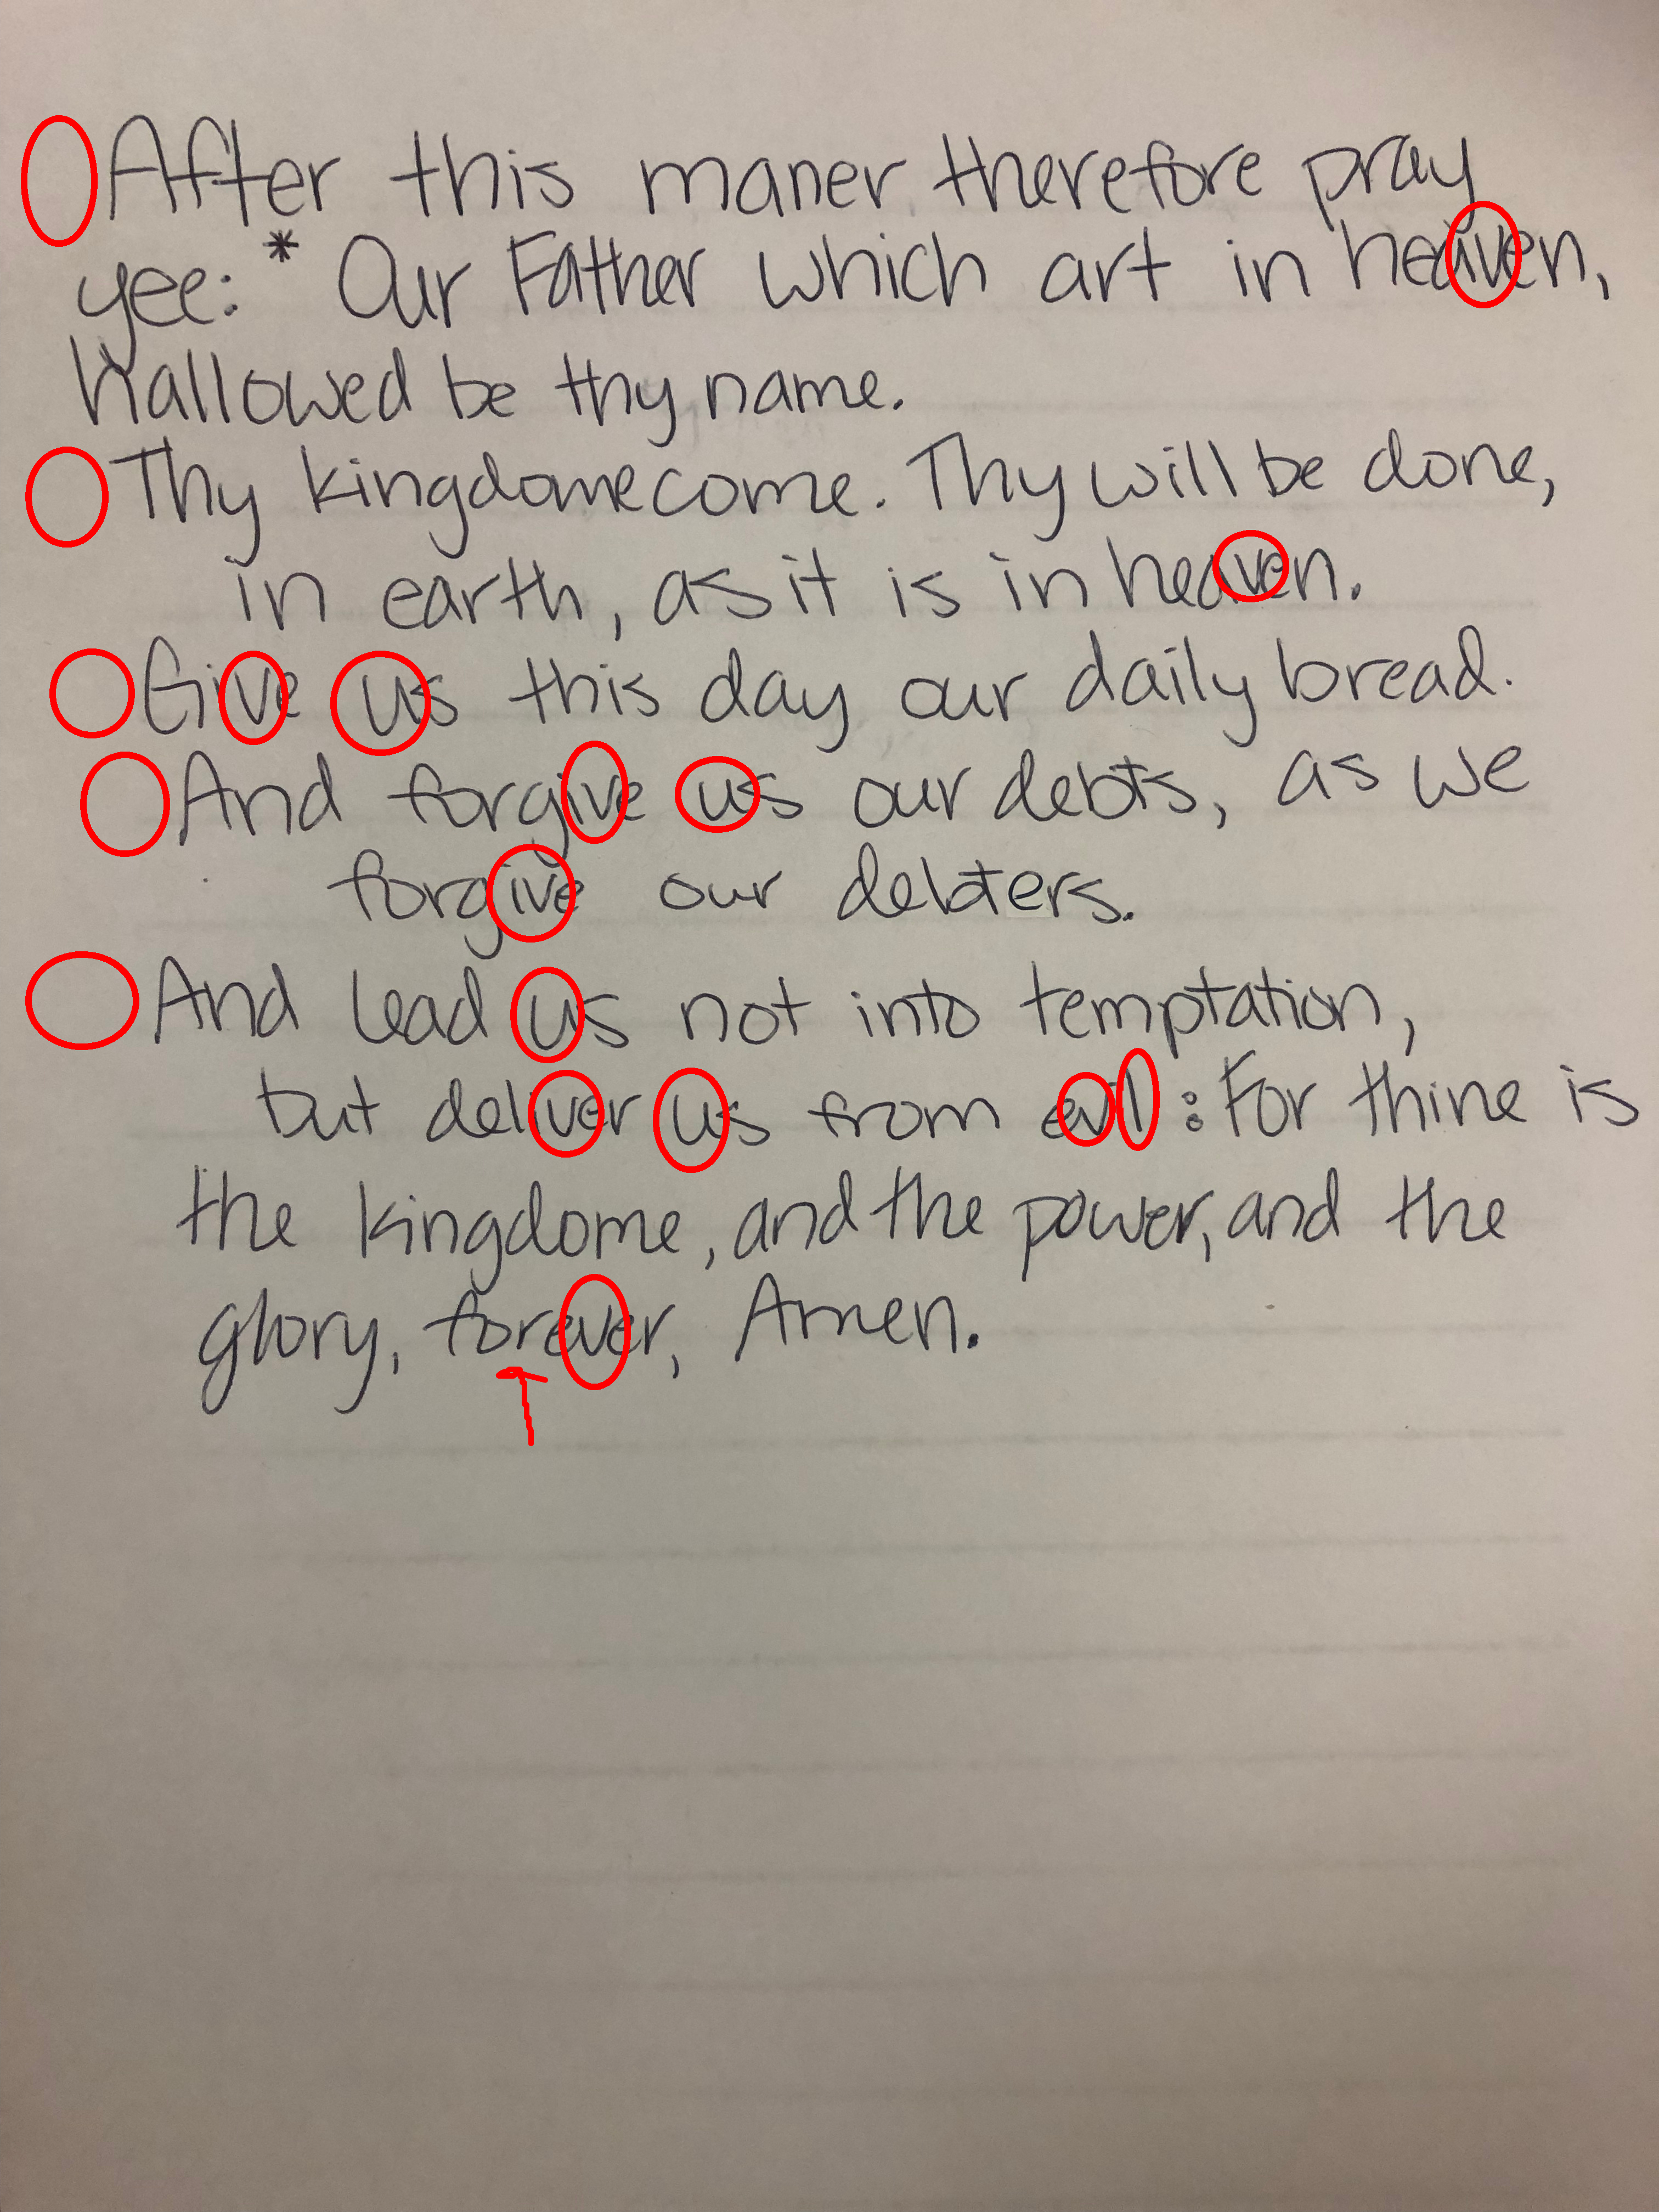 After this maner therefore pray
yee: * Our Father which art in heaven,
hallowed be thy name.
Thy kingdome come. Thy will be done,
in earth, as it is in heaven.
Give us this day our daily bread.
And forgive us our debts, as we
forgive our debters.
And lead us not into temptation,
but deliver us from evil: For thine is
the kingdome, and the power, and the
glory, forever, Amen.